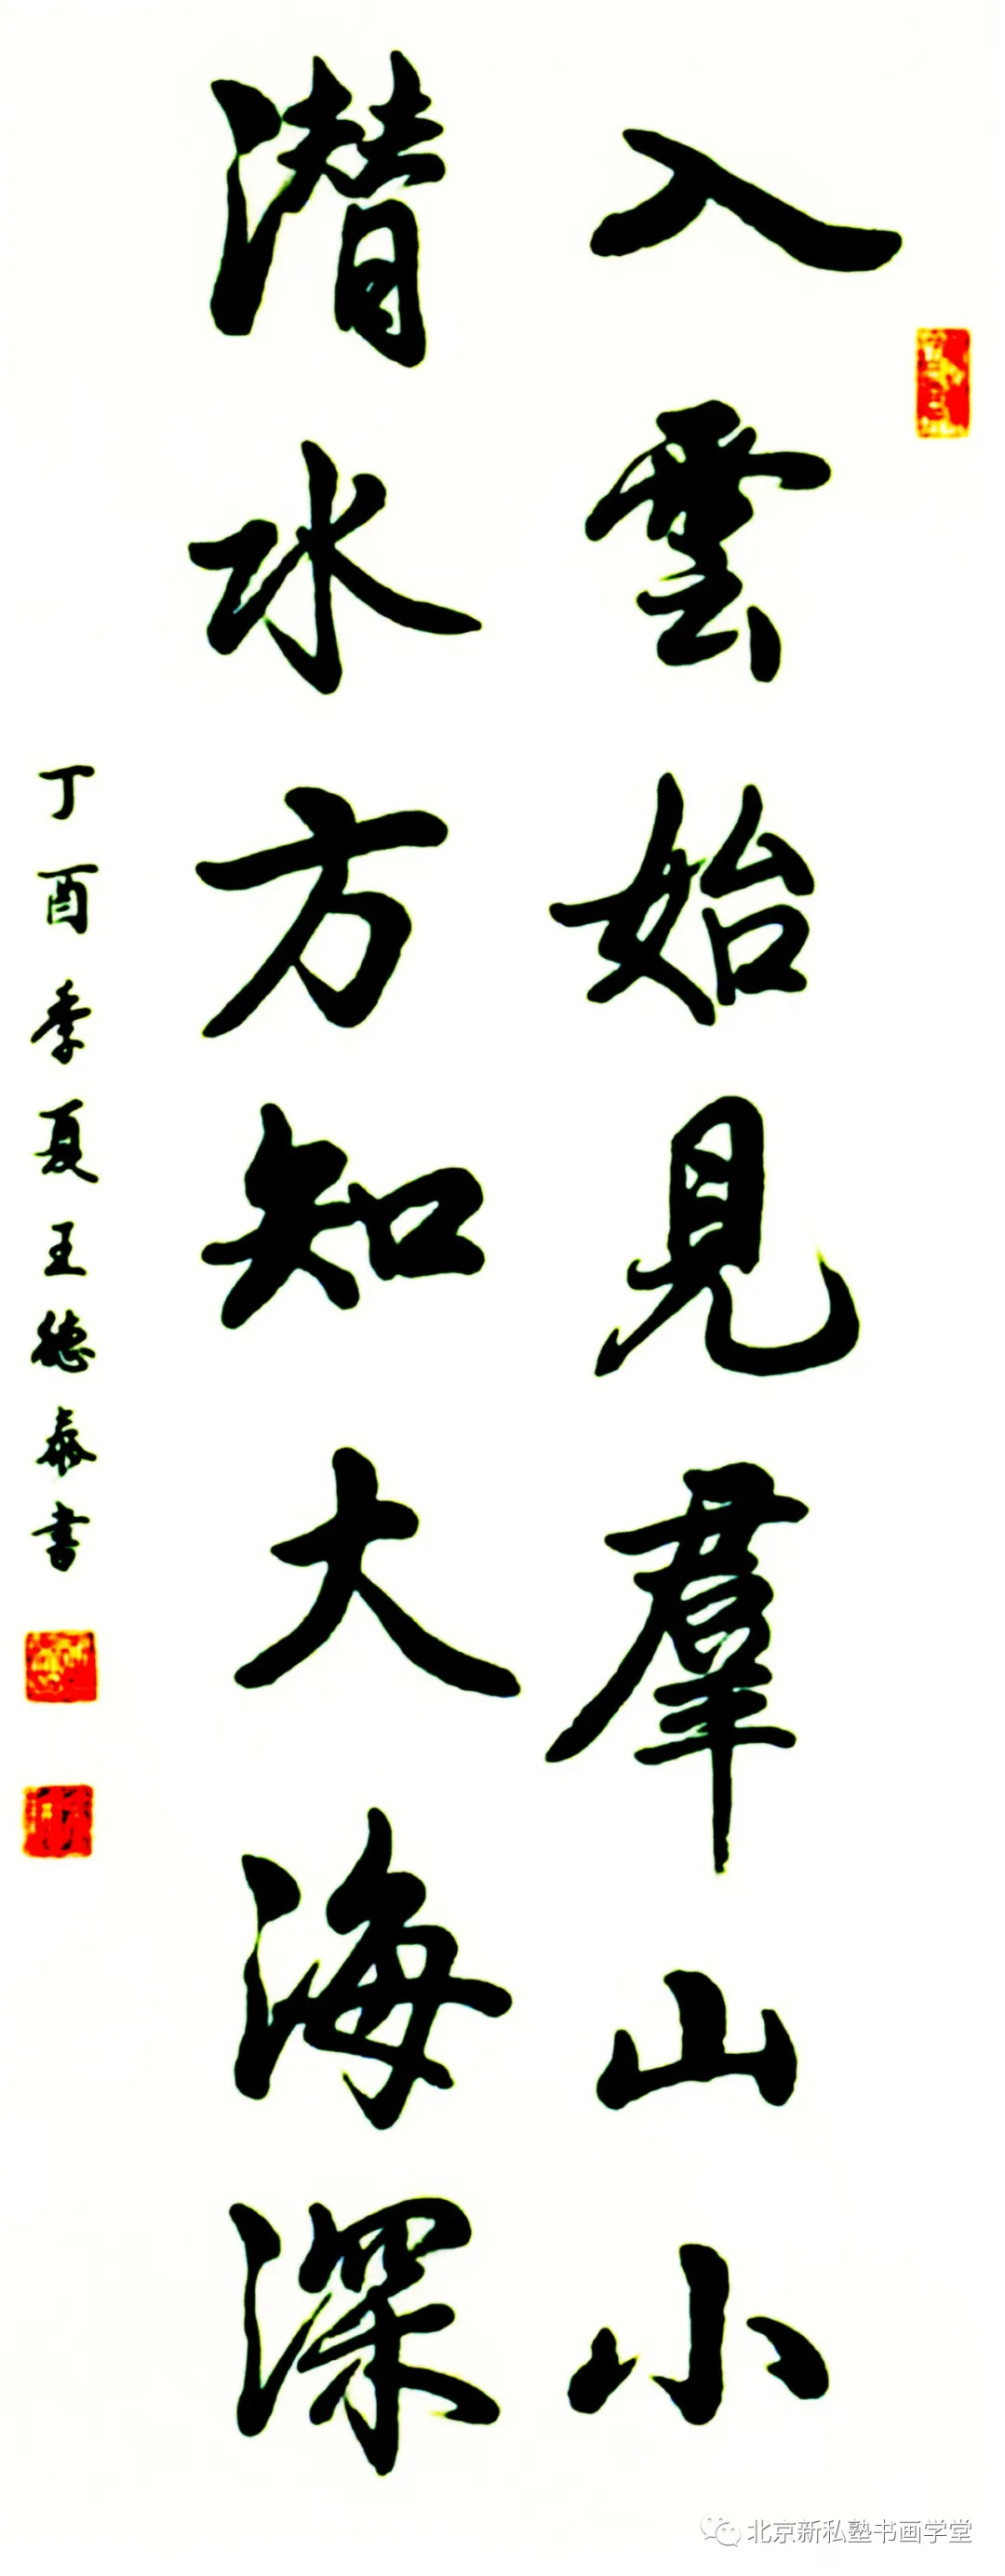 入雲始見羣山小
潜水方知大海深
丁酉季夏王德泰书
北京新私塾书画学堂